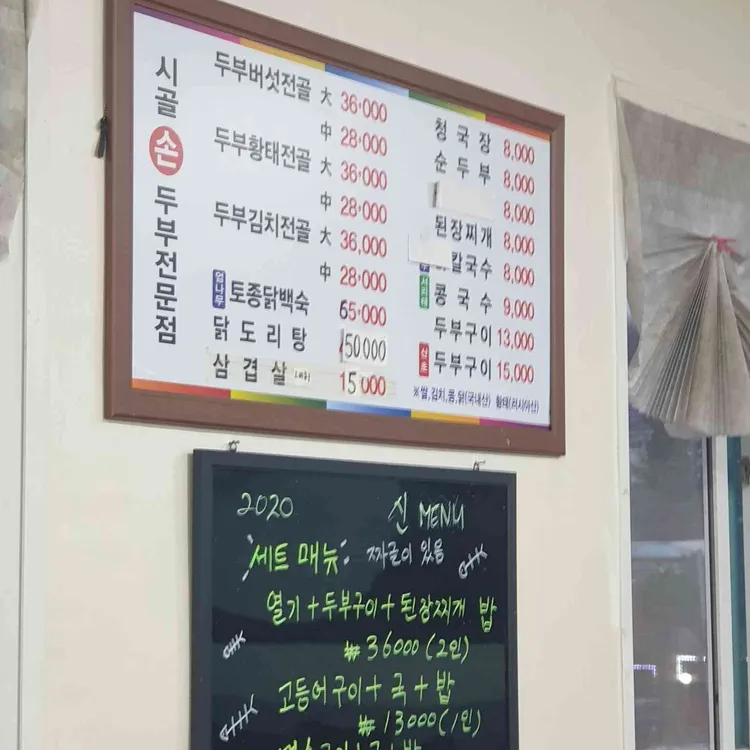 시골 손 두부전문점
두부버섯전골 大 36,000
中 28,000
두부황태전골 大 36,000
中 28,000
두부김치전골 大 36,000
中 28,000
엄나무 토종닭백숙 65,000
닭도리탕 50000
삼겹살 15000
청국장 8,000
순두부 8,000
8,000
된장찌개 8,000
칼국수 8,000
서리태 콩국수 9,000
두부구이 13,000
두부구이 15,000
※쌀,김치,콩,닭(국내산) 황태(러시아산)
2020 신 MENU
세트 매뉴 짜글이 있음
열기+두부구이+된장찌개 밥
₩36000(2인)
고등어구이+국+밥
₩13000(1인)